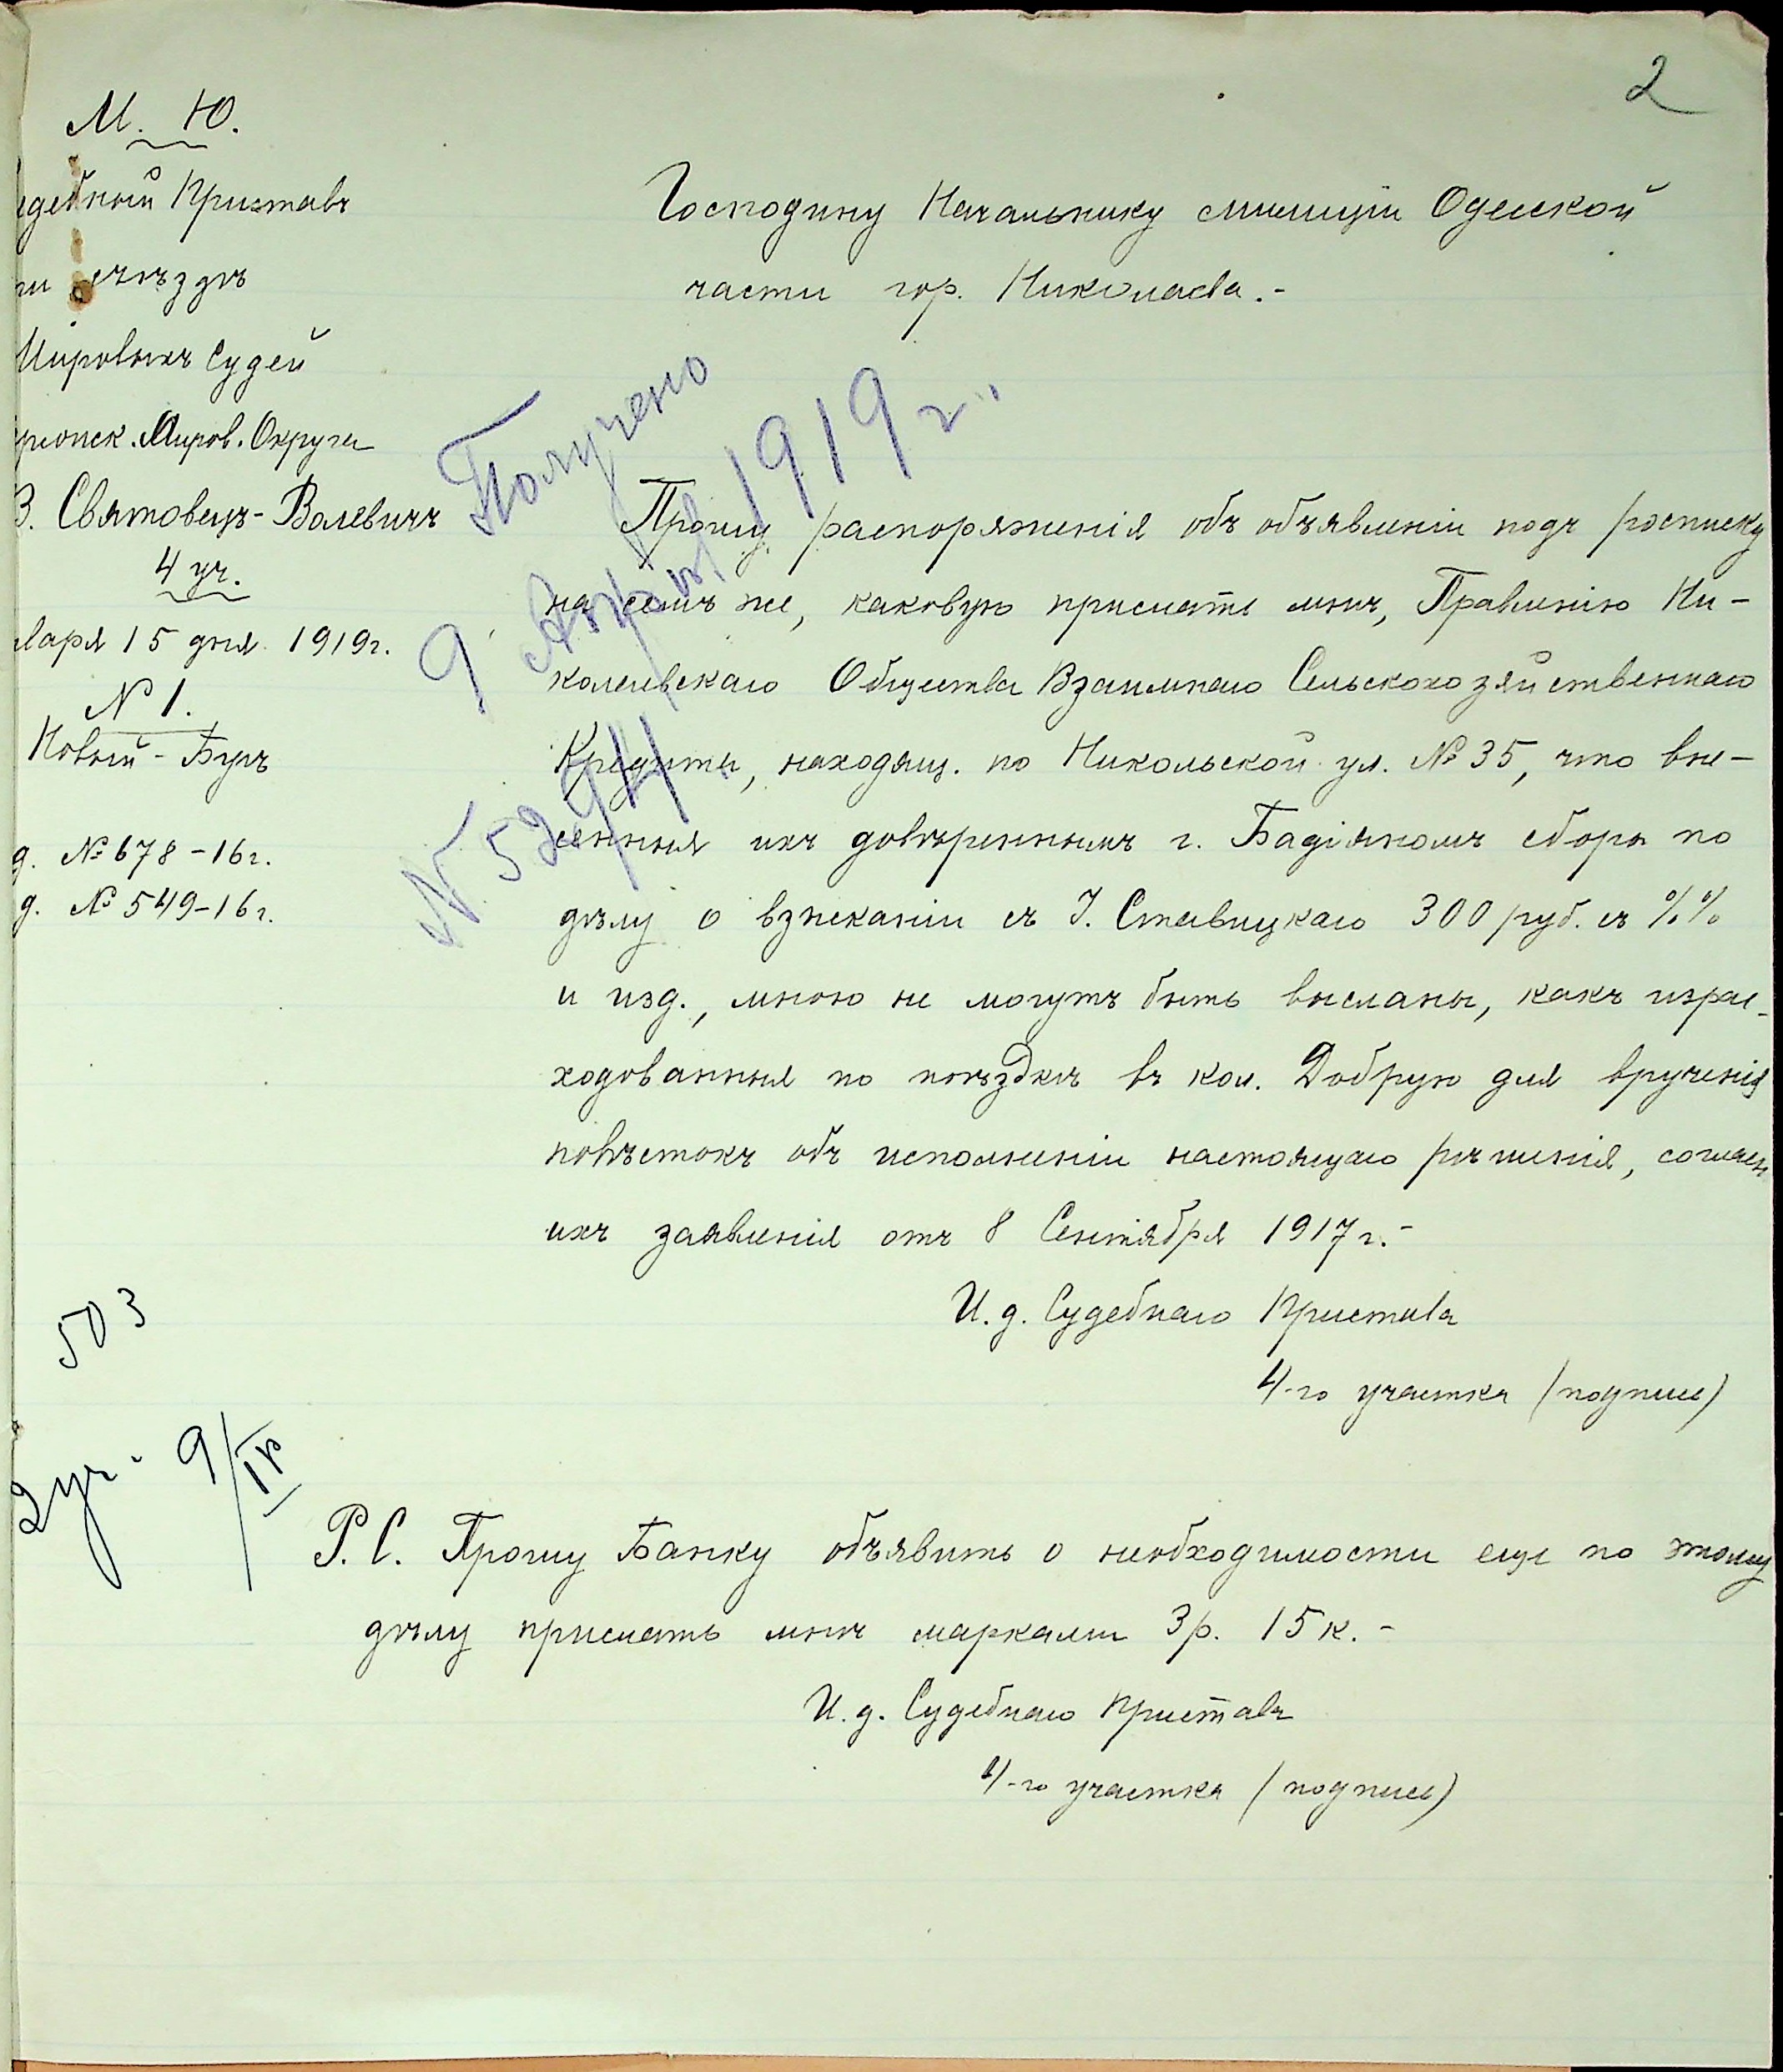 2
М. Ю.
удебный Приставъ
при съѣздѣ
Мировыхъ Судей
Херсонск. Миров. Округа
В. Святовецъ-Валевичъ
4 уч.
варя 15 дня 1919г.
№ 1.
Новый-Бугъ
д. № 678-16г.
д. № 549-16г.
Господину Начальнику милиціи Одесской
части гор. Николаева.-
Получено
9 Апрѣля 1919 г.
№ 5294.
Прошу распоряженія объ объявленіи подъ росписку
на семъ же, каковую прислать мнѣ, Правленію Ни-
колаевскаго Общества Взаимнаго Сельскохозяйственнаго
Кредита, находящ. по Никольской ул. № 35, что вне-
сенныя ихъ довѣреннымъ г. Бадіяномъ сборы по
дѣлу о взысканіи съ І. Ставицкаго 300 руб. съ %%
и изд., мною не могутъ быть высланы, какъ израс-
ходованныя по поѣздкѣ въ кол. Добрую для врученія
повѣстокъ объ исполненіи настоящаго рѣшенія, согласн
ихъ заявленія отъ 8 Сентября 1917 г.-
И. д. Судебнаго Пристава
4-го участка (подпись)
503
2 уч. 9/IV
P.S. Прошу Банку объявить о необходимости еще по этому
дѣлу прислать мнѣ марками 3 р. 15 к.-
И. д. Судебнаго Пристава
4-го участка (подпись)